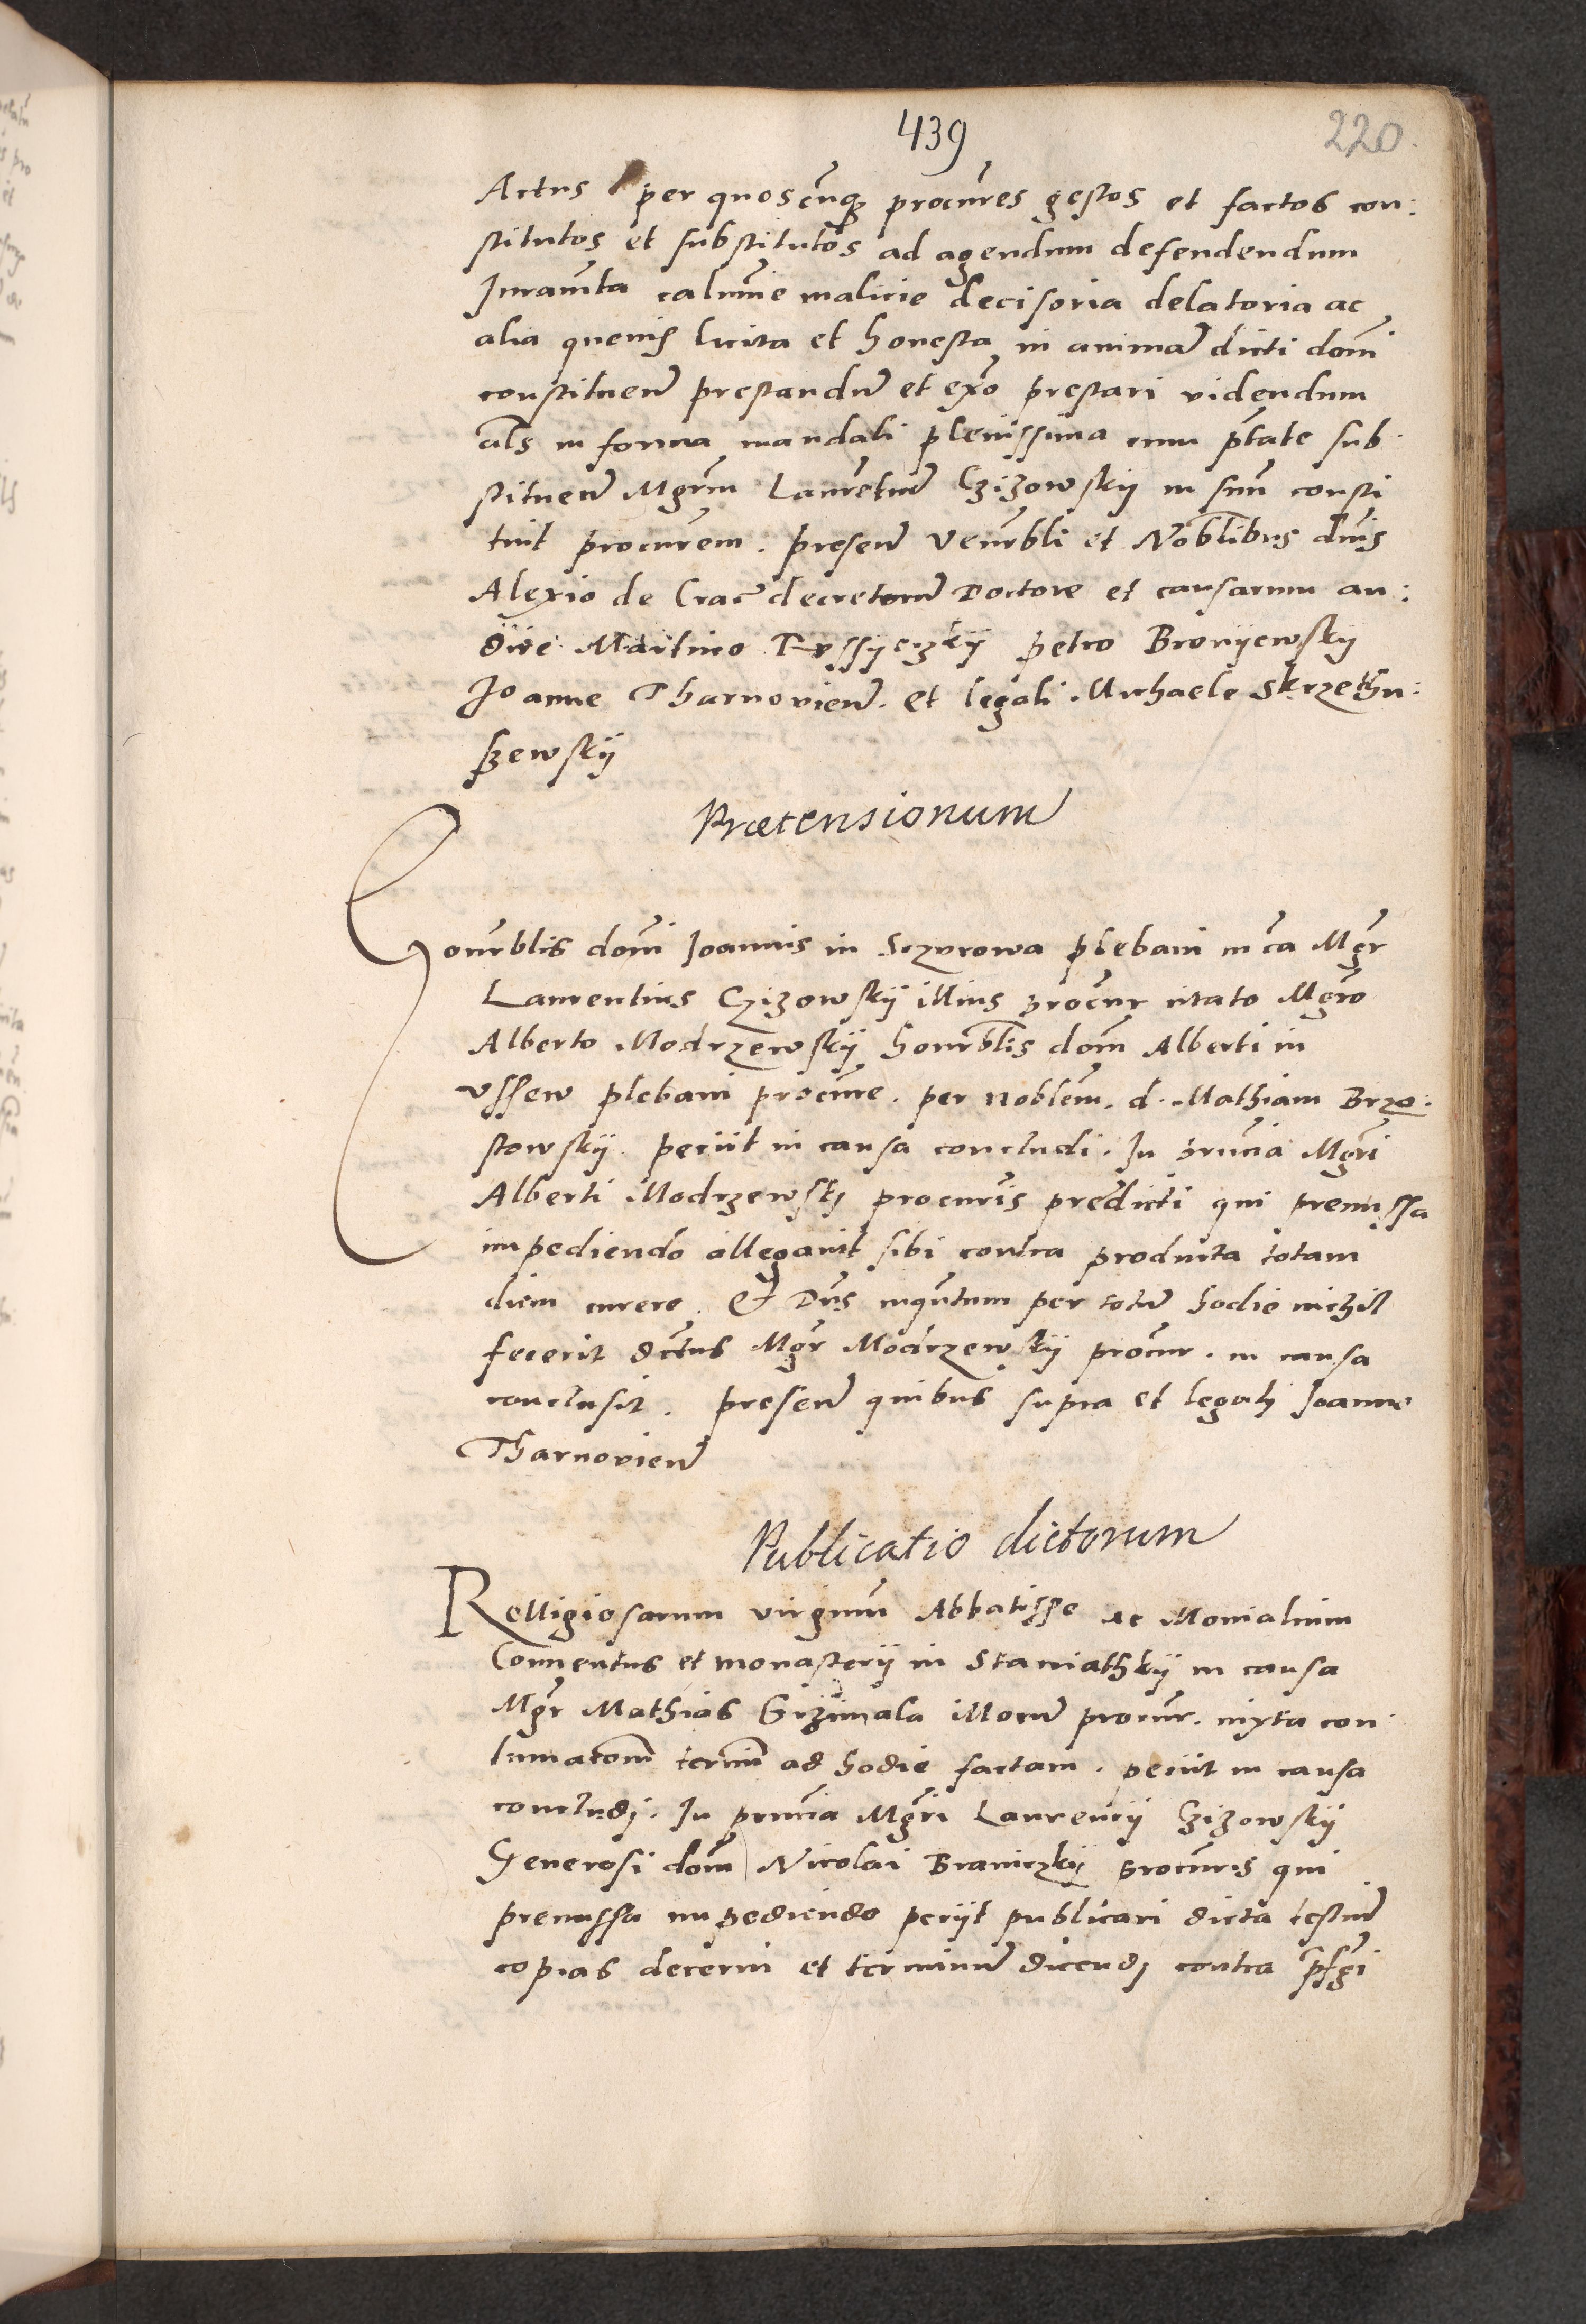 439
220.
Actus per quoscunq procures gestos et factos con:
stitutos et substitutos ad agendum defendendum
Juramta calumnie malicie decisoria delatoria ac
alia quevis licita et honesta in animam dicti domi
constituen prestandum et exo prestari videndum
als in forma mandati plenissima cum ptate sub
stituen Mgrm Laurentium Czizowskij in sum consti
tuit procurem. presen venrbli et Noblibus dnis
Alexio de Crac decretorum Doctore et causarum au:
dire Martino Petro Bronijewskij
Joanne Tharnovien. et legali Michaele Skrzethu:
szewskij
Prætensionum
Honrblis domi Joannis in Sczurowa plebani in ca Mgr
Laurentius Czizowskij illius procur citato Mgro
Alberto Modrzewskij honrblis dom Alberti in
Ussew plebani procure. per noblem. d. Mathiam Brzo:
stowskij. peciit in causa concludi. In pruncia Mgri
Alberti Modrzewskj procuris predicti qui premissa
impediendo allegavit sibi contra producta totam
diem currere. Et Dns inqntum per totum hodie nichil
fecerit dctus Mgr Modrzewskij procur. in causa
conclusit. presen quibus supra et legalj Joanne
Tharnovien
Publicatio dictorum
Relligiosarum virginum Abbatisse ac Monialium
Conventus et monasterij in Staniathkij in causa
Mgr Mathias Grzimala illorum procur. iuxta con
tumatom termi ad hodie factam. peciit in causa
concludj. In pruncia Mgri Laurencij Czizowskij
Generosi dom Nicolai Braniczkij procuris qui
premissa impediendo peciit publicari dicta testium
copias decerni et terminum dicendj contra